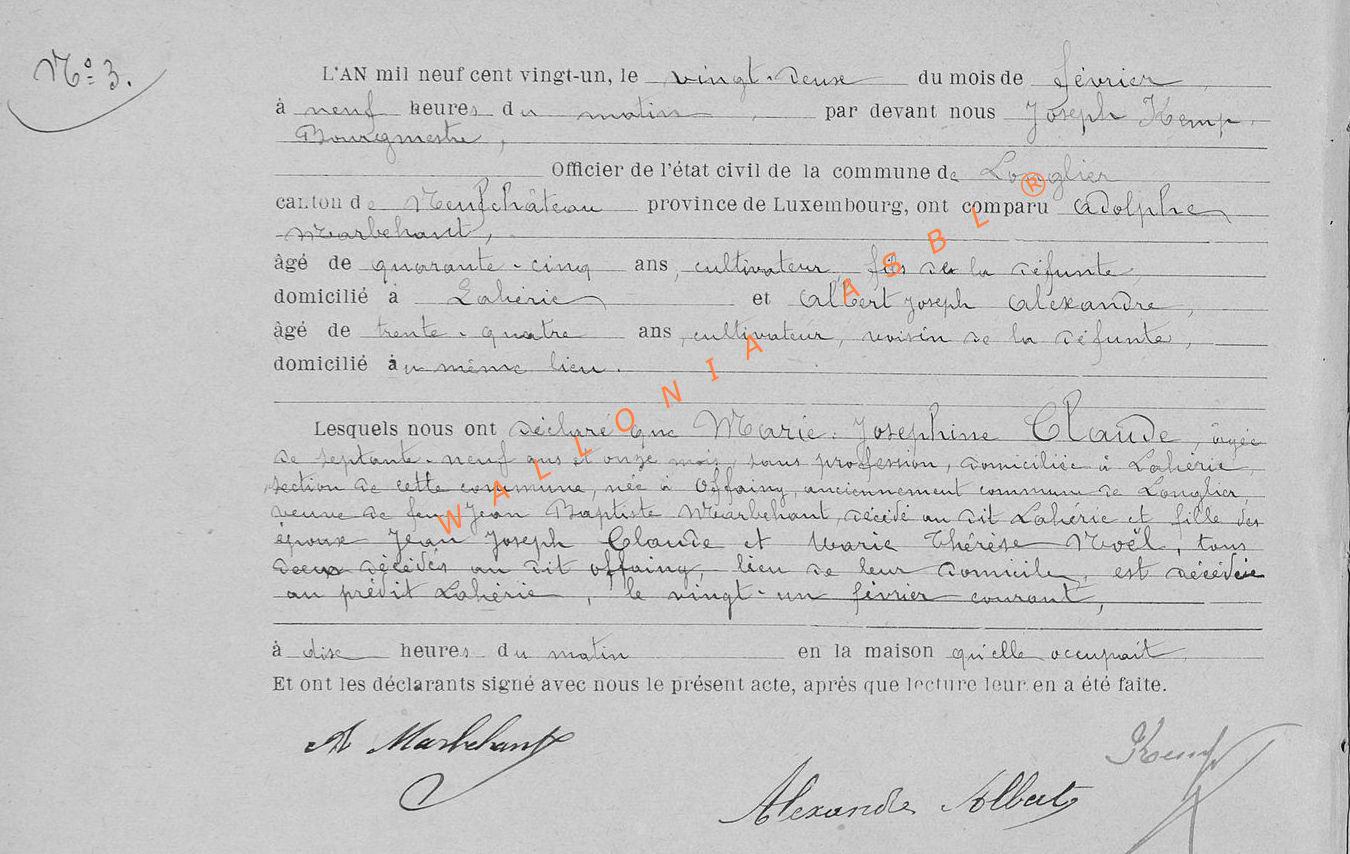 Nº 3.
L'AN mil neuf cent vingt-un, le vingt-deux du mois de février
à neuf heures du matin, par devant nous Joseph Kemp,
Bourgmestre,
Officier de l'état civil de la commune de Longlier
canton de Neufchâteau province de Luxembourg, ont comparu Adolphe
Marbehant,
âgé de quarante-cinq ans, cultivateur, fils de la défunte,
domicilié à Lahérie et Albert Joseph Alexandre,
âgé de trente-quatre ans, cultivateur, voisin de la défunte,
domicilié au même lieu.
Lesquels nous ont déclaré que Marie-Joséphine Claude, âgée
de septante-neuf ans et onze mois, sans profession, domiciliée à Lahérie,
section de cette commune, née à Offaing, anciennement commune de Longlier,
veuve de feu Jean Baptiste Marbehant, décédé au dit Lahérie et fille des
époux Jean Joseph Claude et Marie Thérèse Noël, tous
deux décédés au dit Offaing, lieu de leur domicile, est décédée
au prédit Lahérie, le vingt-un février courant,
à dix heures du matin en la maison qu'elle occupait
Et ont les déclarants signé avec nous le présent acte, après que lecture leur en a été faite.
A Marbehant
Kemp
Alexandre Albert
WALLONIA ASBL ®